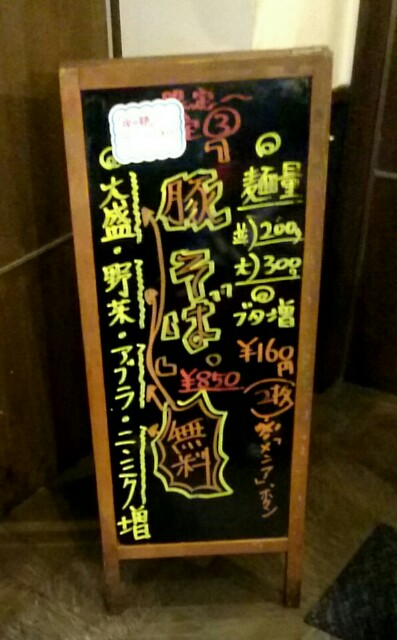 限定③
「豚そば」。
¥850
麺量
並)200g
大)300g
ブタ増
¥160円
(2枚)
大盛・野菜・アブラ・ニンニク増
無料